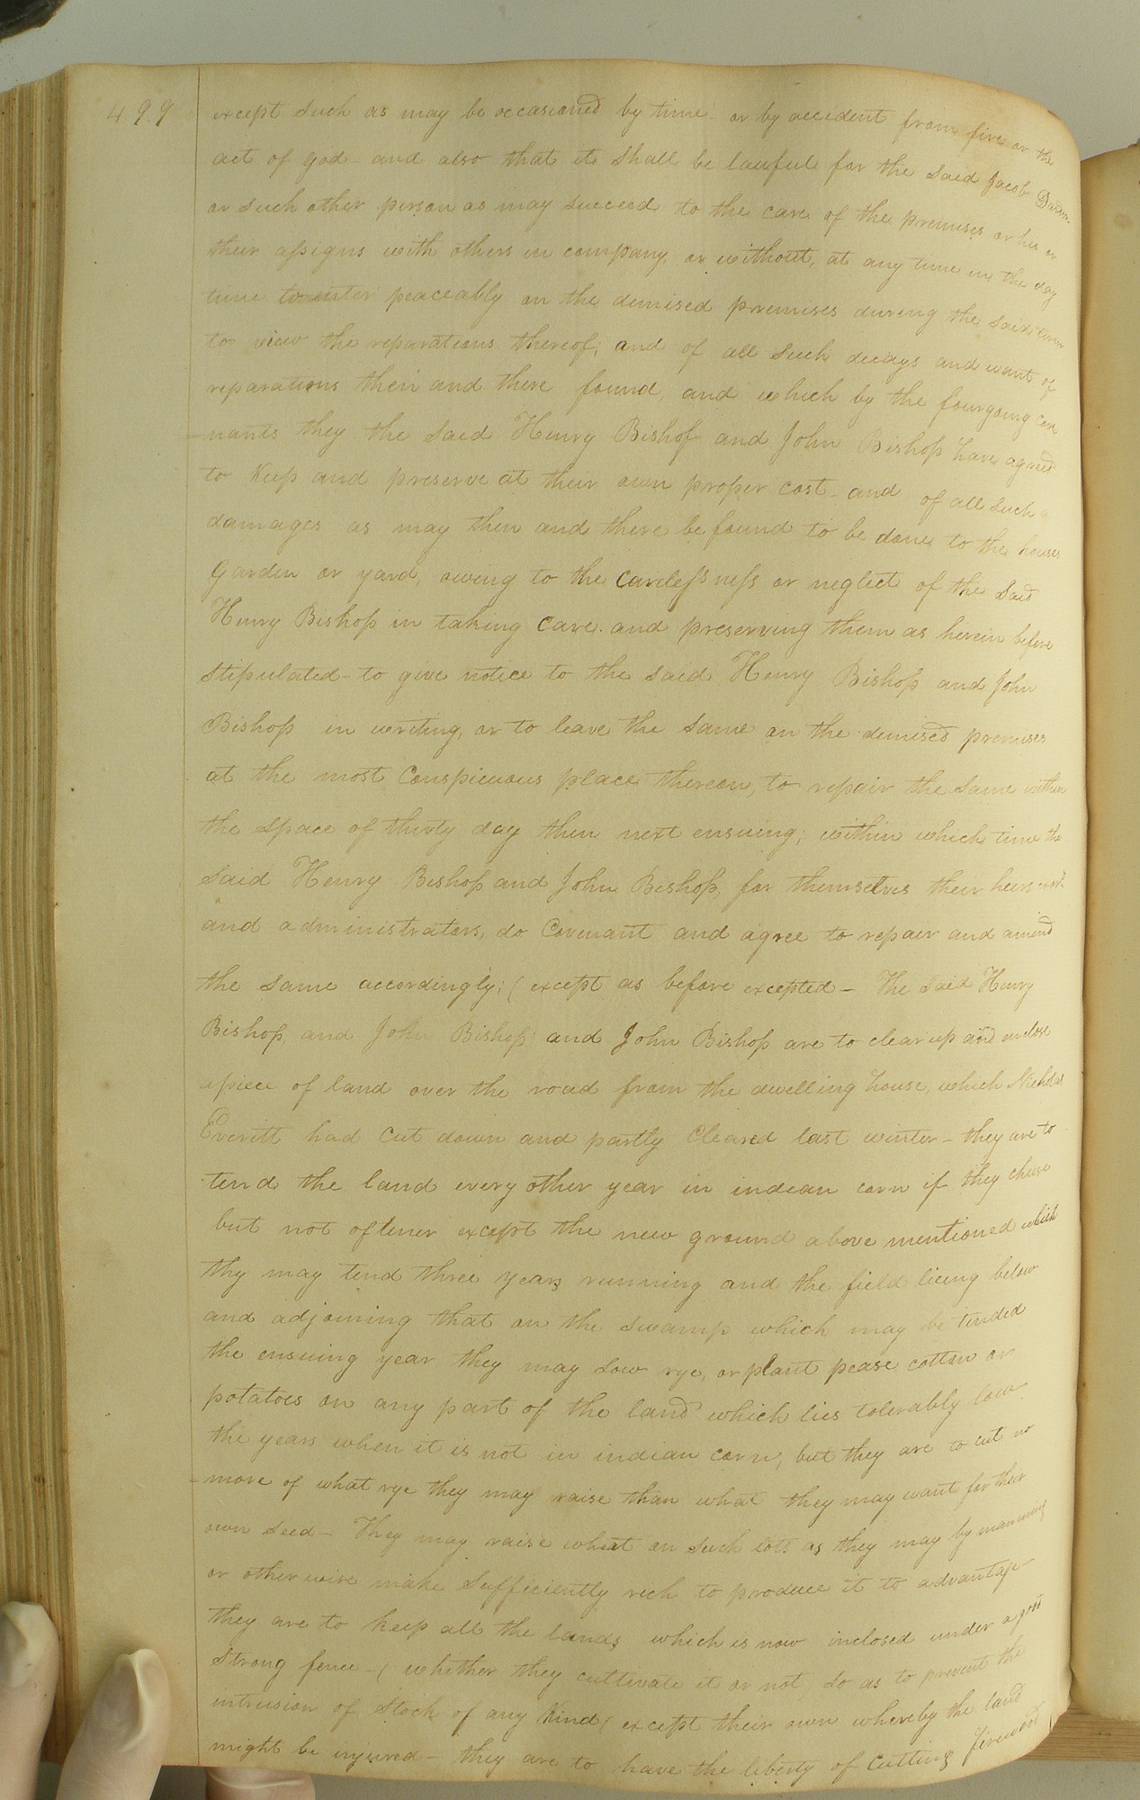 499
except such as may be occasioned by time or by accident from fire or the
act of god - and also that it shall be lawful for the said Jacob
or such other person as may succeed to the care of the premises or his or
their assigns with others in company, or without, at any time in the day
time to enter peaceably on the demised premises during the said term
to view the reparations thereof, and of all such decays and want of
reparations then and there found, and which by the fourgoing cove
-nants they the said Henry Bishop and John Bishop have agreed
to keep and preserve at their own proper cost - and of all such
damages as may then and there be found to be done to the houses
Garden or yard, owing to the carelessness or neglect of the said
Henry Bishop in taking care. and preserving them as herein before
stipulated - to give notice to the said Henry Bishop and John
Bishop in writing, or to leave the same on the demised premises
at the most Conspicuous place thereon, to repair the same within
the space of thirty day then next ensuing; within which time the
said Henry Bishop and John Bishop, for themselves their heirs
and administrators, do Covenant and agree to repair and amend
the same accordingly; ( except as before excepted - The said Henry
Bishop and John Bishop and John Bishop are to clear up and enclose
a piece of land over the road from the dwelling house, which Nicholas
Everitt had cut down and partly Cleared last winter - they are to
tend the land every other year in indean corn if they chuse
but not oftener except the new ground above mentioned which
thy may tend three years running and the field lieing below
and adjoining that on the swamp which may be tended
the ensuing year they may sow rye, or plant pease cotton or
potatoes on any part of the land which lies tolerably low
the years when it is not in indean corn, but they are to cut no
-more of what rye they may raise than what they may want for their
own seed - They may raise wheat on such lots as they may by manuring
or otherwise make sufficiently rich to produce it to advantage
they are to keep all the lands which is now inclosed under a good
strong fence - ( whether they cultivate it or not, so as to prevent the
intrusion of stock of any kind ( except their own whereby the land
might be injured - they are to have the liberty of cutting firewood